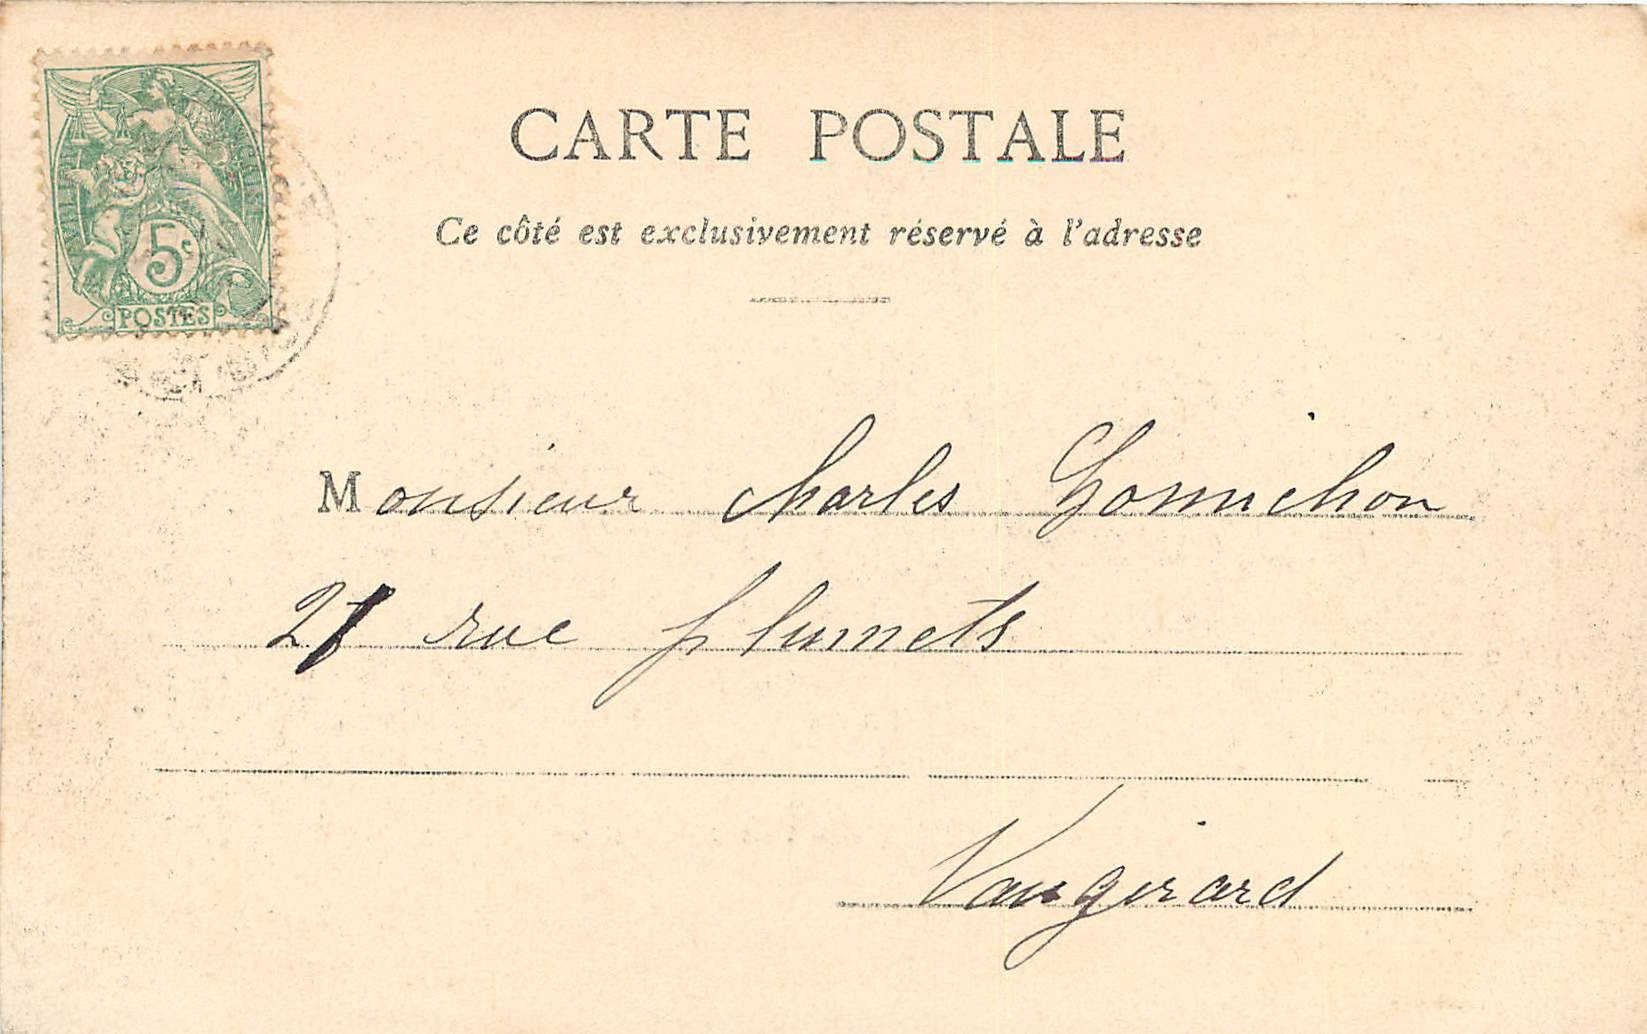 5c
POSTES
CARTE POSTALE
Ce côté est exclusivement réservé à l'adresse
Monsieur Charles Gonnichon
21 rue plumets
Vaugirard